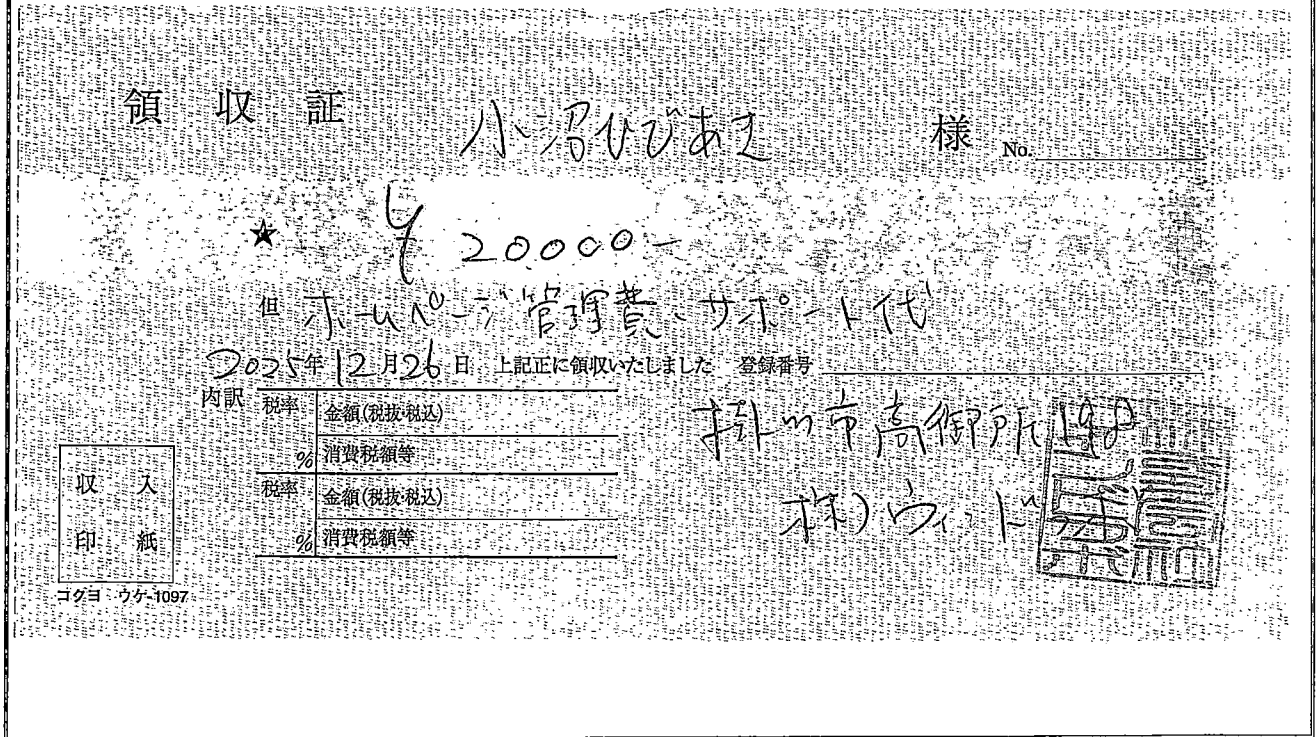 領収証 小沼ひであき 様 No.
★ ¥20000-
但 ホームページ管理費・サポート代
2025年12月26日 上記正に領収いたしました 登録番号
内訳 税率 % 金額(税抜・税込)
消費税額等
税率 % 金額(税抜・税込)
消費税額等
掛川市高御所198
株)ウィード
収入
印紙
コクヨ ウケ-1097